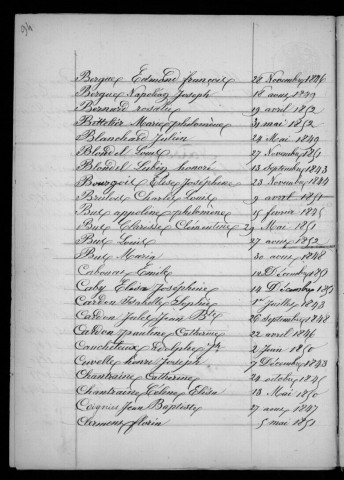 94
Berque Edmond françois 24 Novembre 1846
Berque Napoléon Joseph 18 aout 1849
Bernard rosalie 19 avril 1852
Marie philomène 31 mai 1852
Blanchard Julien 24 Mai 1849
Blondel Louis 27 Novembre 1851
Blondel Lubin honoré 13 septembre 1843
Bourgois Elise Joséphine 23 Novembre 1844
Brulois Charles Louis 9 avril 1851
Bus appoline philomène 5 février 1845
Bus Clarisse Clementine 29 Mai 1851
Bus Louis 27 aout 1852
Bus Maria 30 aout 1848
Cabouau Emile 10 Décembre 1851
Caby Elisa Joséphine 14 Décembre 1851
Cardon Sophie 1er Juillet 1843
Cardon Jules Jean Bte 26 septembre 1848
Cardon pauline Catherine 22 avril 1846
Caucheteux Adolphe 2 Juin 1850
Cuvelle henri Joseph 7 Décembre 1843
Chantraine Catherine 24 octobre 1845
Chantraine Hélène Elisa 13 Mai 1850
Coignus Jean Baptiste 27 aout 1847
Clermeus florin 5 mai 1851